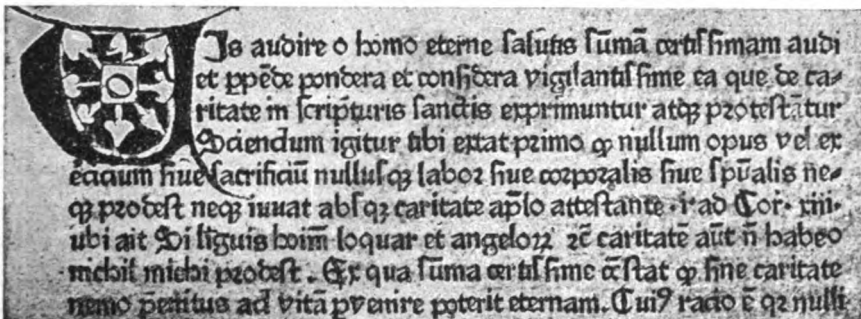 VIs audire o homo eterne salutis sūmā certissimam audi
et ꝓpēde pondera et considera vigilantissime ea que de ca⸗
ritate in scripturis sanctis exprimuntur atqꝫ protestātur
Sciendum igitur tibi extat primo ꝙ nullum opus vel ex
ercicium siue sacrificiū nullusqꝫ labor siue corporalis siue spūalis ne⸗
qꝫ prodest neqꝫ iuuat absqꝫ caritate aplo attestante · i· ad Cor· xiii·
ubi ait Si liguis hoim̄ loquar et angeloꝝ ⁊c̄ caritatē aūt n̄ habeo
nichil michi prodest . Ex qua suma certissime c̄stat ꝙ sine caritate
nemo penitus ad vitā ꝑvenire poterit eternam. Cuiꝰ racio ē qꝛ nulli